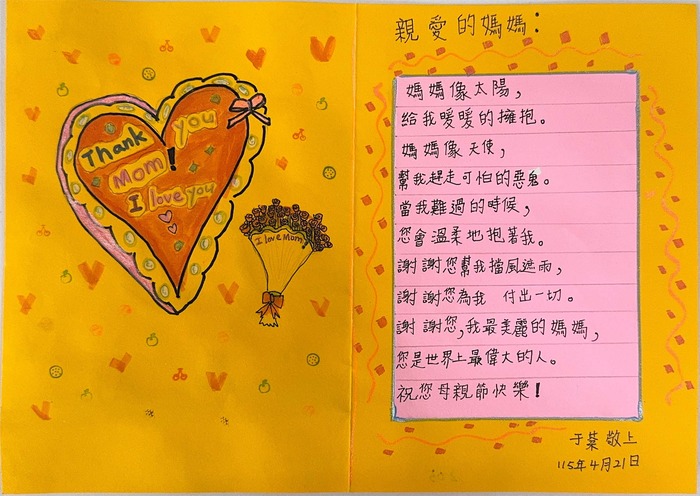 Thank you
Mom!
I love you
I love Mom
親愛的媽媽：
媽媽像太陽，
給我暖暖的擁抱。
媽媽像天使，
幫我趕走可怕的惡鬼。
當我難過的時候，
您會溫柔地抱著我。
謝謝您幫我擋風遮雨，
謝謝您為我 付出一切。
謝謝您，我最美麗的媽媽，
您是世界上最偉大的人。
祝您母親節快樂！
于葉 敬上
115年4月21日